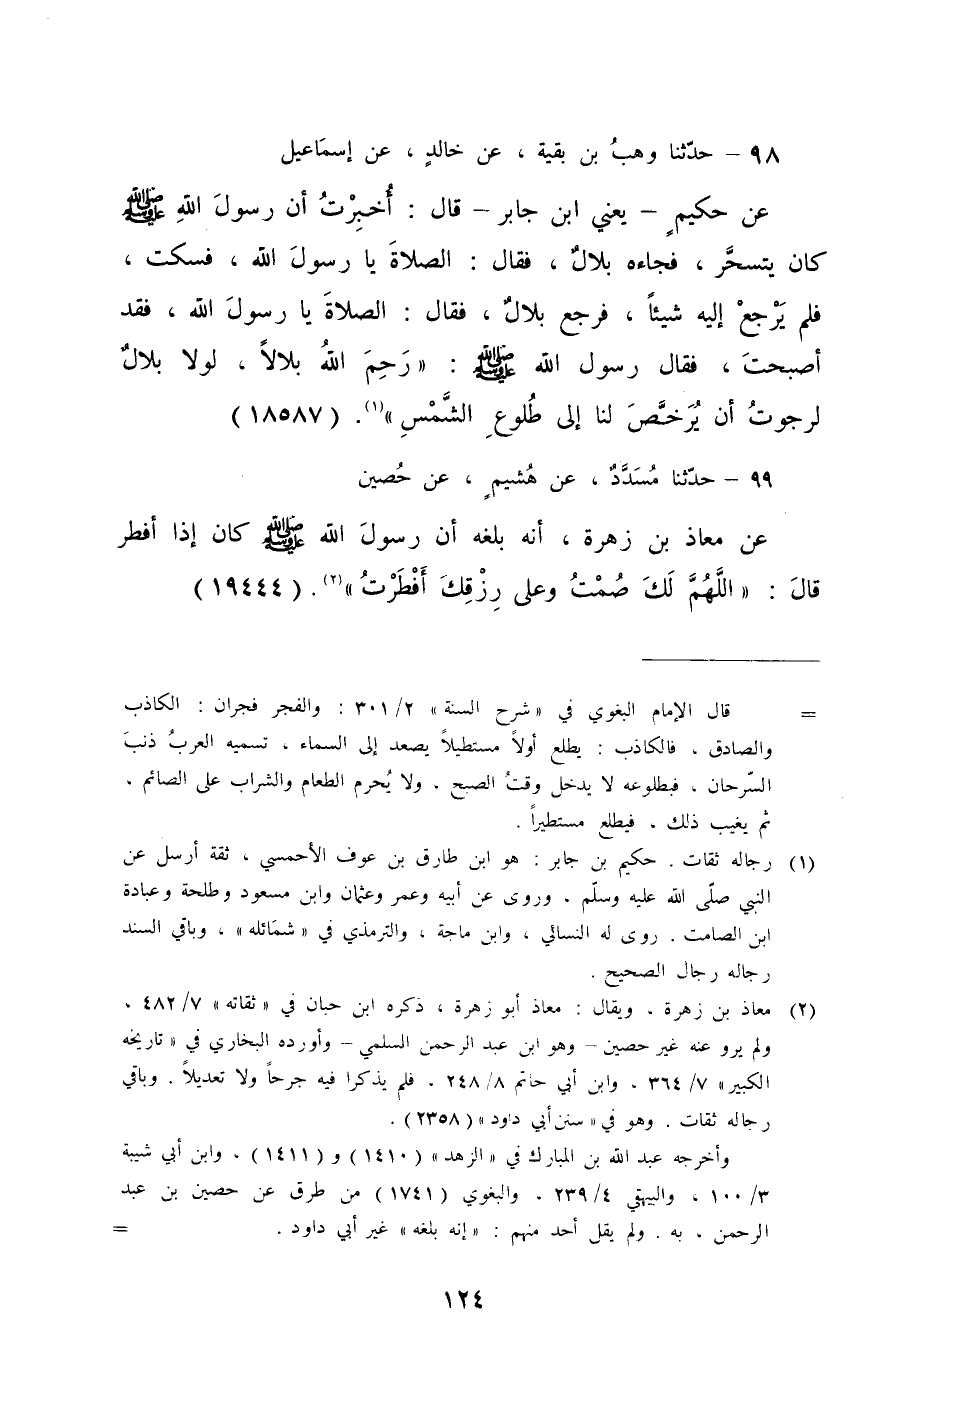 ٩٨ – حدّثنا وهبُ بن بقية ، عن خالدٍ ، عن إسمَاعيل
عن حكيمٍ – يعني ابن جابر – قال : أُخبِرْتُ أن رسولَ اللهِ ﷺ
كان يتسحَّر ، فجاءه بلالٌ ، فقال : الصلاةَ يا رسولَ الله ، فسكت ،
فلم يَرْجعْ إليه شيئاً ، فرجع بلالٌ ، فقال : الصلاةَ يا رسولَ الله ، فقد
أصبحتَ ، فقال رسول الله ﷺ : « رَحِمَ اللهُ بلالاً ، لولا بلالٌ
لرجوتُ أن يُرَخَّصَ لنا إلى طُلوعِ الشَّمْسِ »(١). ( ١٨٥٨٧ )
٩٩ – حدّثنا مُسَدَّدٌ ، عن هُشيمٍ ، عن حُصين
عن معاذ بن زهرة ، أنه بلغه أن رسولَ الله ﷺ كان إذا أفطر
قالَ : « اللَّهُمَّ لَكَ صُمْتُ وعلى رِزْقِكَ أَفْطَرْتُ »(٢). ( ١٩٤٤٤ )
= قال الإمام البغوي في « شرح السنة » ٢/ ٣٠١ : والفجر فجران : الكاذب
والصادق ، فالكاذب : يطلع أولاً مستطيلاً يصعد إلى السماء ، تسميه العربُ ذنبَ
السّرحان ، فبطلوعه لا يدخل وقتُ الصبح . ولا يُحرم الطعام والشراب على الصائم .
ثم يغيب ذلك ، فيطلع مستطيراً .
(١) رجاله ثقات . حكيم بن جابر : هو ابن طارق بن عوف الأحمسي ، ثقة أرسل عن
النبي صلّى الله عليه وسلّم . وروى عن أبيه وعمر وعثمان وابن مسعود وطلحة وعبادة
ابن الصامت . روى له النسائي ، وابن ماجة ، والترمذي في « شمَائله » ، وباقي السند
رجاله رجال الصحيح .
(٢) معاذ بن زهرة . ويقال : معاذ أبو زهرة ، ذكره ابن حبان في « ثقاته » ٧/ ٤٨٢ .
ولم يرو عنه غير حصين – وهو ابن عبد الرحمن السلمي – وأورده البخاري في « تاريخه
الكبير » ٧/ ٣٦٤ . وابن أبي حاتم ٨/ ٢٤٨ . فلم يذكرا فيه جرحاً ولا تعديلاً . وباقي
رجاله ثقات . وهو في « سنن أبي داود » ( ٢٣٥٨ ) .
وأخرجه عبد الله بن المبارك في « الزهد » ( ١٤١٠ ) و ( ١٤١١ ) ، وابن أبي شيبة
٣/ ١٠٠ ، والبيهقي ٤/ ٢٣٩ ، والبغوي ( ١٧٤١ ) من طرق عن حصين بن عبد
الرحمن ، به . ولم يقل أحد منهم : « إنه بلغه » غير أبي داود . =
١٢٤